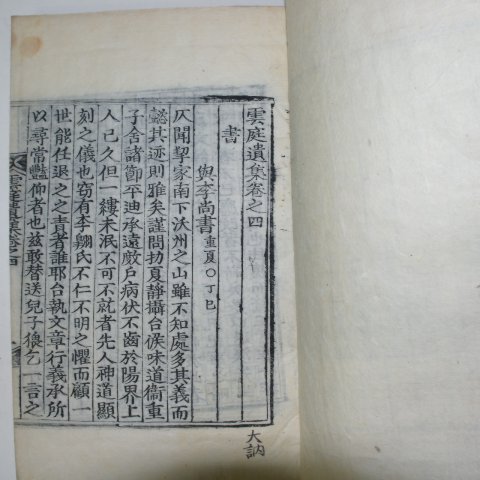 雲庭遺集卷之四
書
與李尚書重夏○丁巳
仄聞挈家南下沃州之山雖不知處多其義而
懿其迹則雅矣謹問抄夏靜攝台候味道衛重
子舍諸節平迪承遠蔽戶病伏不齒於陽界上
人已久但一縷未泯不可不就者先人神道顯
刻之儀也窃有李翶氏不仁不明之懼而顧一
世能任退之之責者誰耶台執文章行義承所
以尋當豔仰者也玆敢替送兒子狼乞一言之
雲庭遺集卷四
大訥